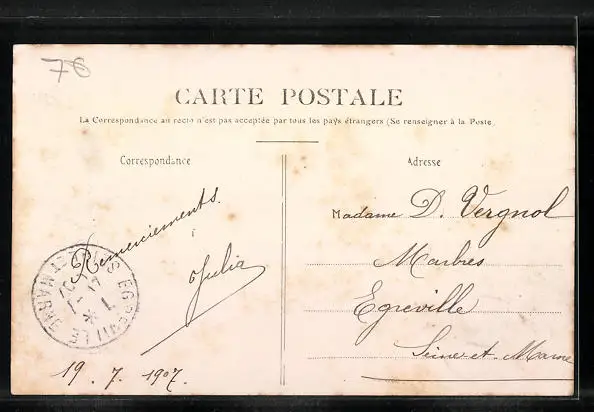 76
CARTE POSTALE
La Correspondance au recto n'est pas acceptée par tous les pays étrangers (Se renseigner à la Poste
Correspondance
Remerciements.
Julia
19. 7. 1907.
EGREVILLE
ET MARNE
Adresse
Madame D. Vergnol
Marbres
Egreville
Seine-et-Marne